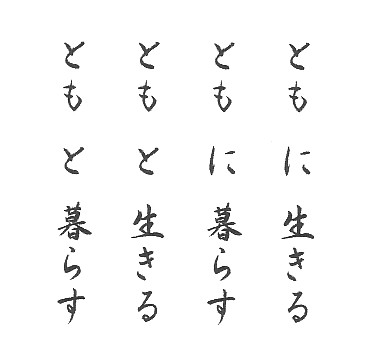 ともに生きる
ともに暮らす
ともと生きる
ともと暮らす